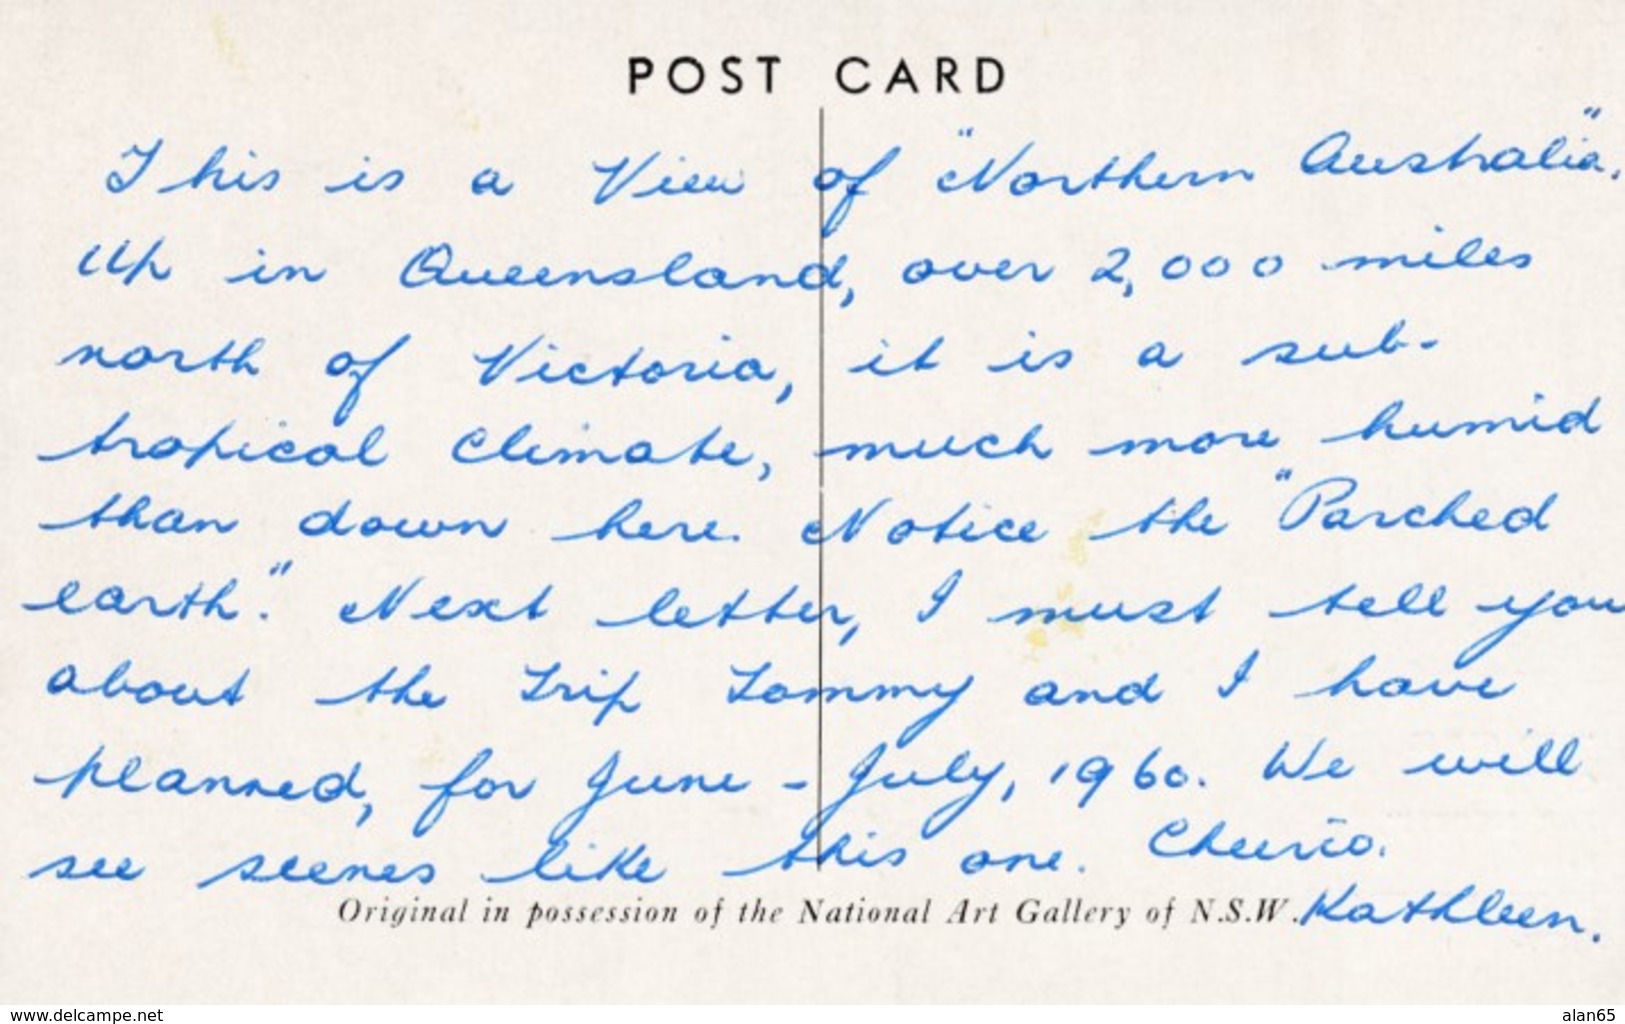 POST CARD
This is a View of "Northern Australia".
Up in Queensland, over 2,000 miles
north of Victoria, it is a sub-
tropical climate, much more humid
than down here. Notice the "Parched
earth." Next letter, I must tell you
about the Trip Tommy and I have
planned, for June - July, 1960. We will
see scenes like this one. Cheerio.
Original in possession of the National Art Gallery of N.S.W. Kathleen.
www.delcampe.net alan65